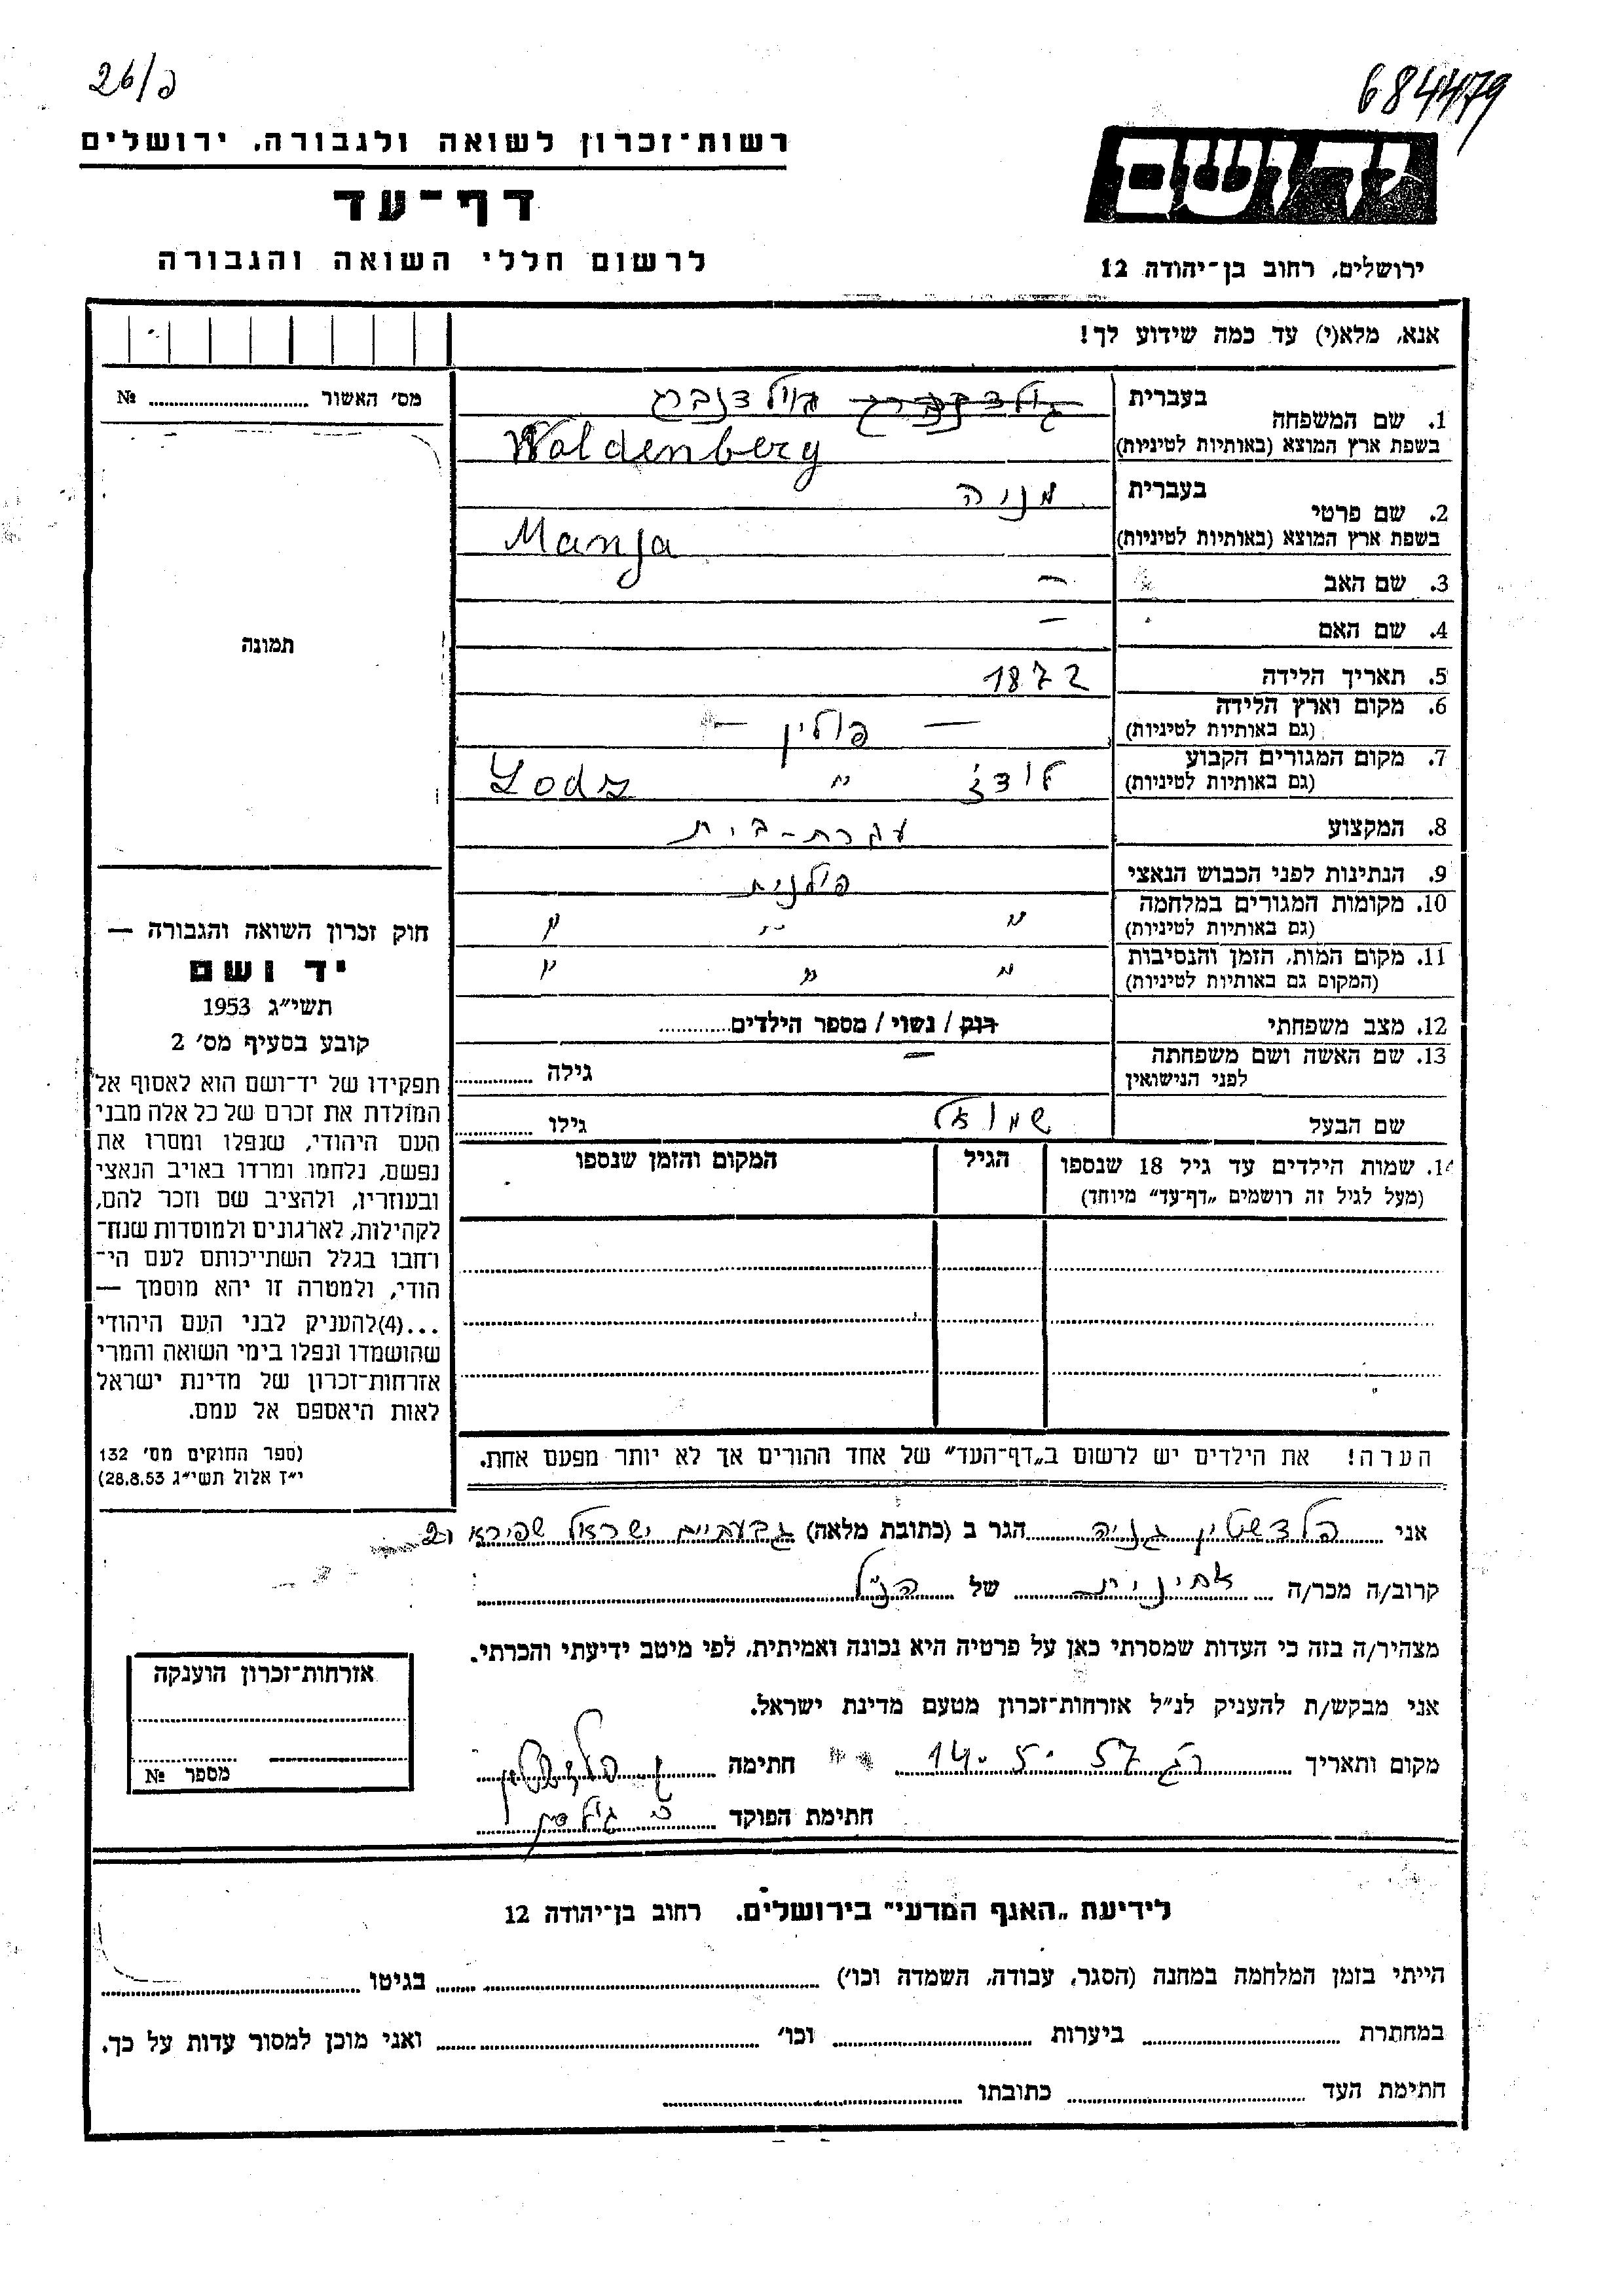 26/פ
684479
רשות־זכרון לשואה ולגבורה. ירושלים
יד ושם
דף־עד
לרשום חללי השואה והגבורה
ירושלים, רחוב בן־יהודה 12
אנא, מלא(י) עד כמה שידוע לך!
מס׳ האשור № 
1. שם המשפחה
בעברית
בשפת ארץ המוצא (באותיות לטיניות)
Woldenberg
2. שם פרטי
בעברית מניה
בשפת ארץ המוצא (באותיות לטיניות) Manja
3. שם האב –
4. שם האם –
5. תאריך הלידה 1872
6. מקום וארץ הלידה
(גם באותיות לטיניות) – פולין –
7. מקום המגורים הקבוע
(גם באותיות לטיניות) לודז׳ " Lodz
8. המקצוע עקרת-בית
9. הנתינות לפני הכבוש הנאצי פולנית
10. מקומות המגורים במלחמה
(גם באותיות לטיניות) " " "
11. מקום המות, הזמן והנסיבות
(המקום גם באותיות לטיניות) " " "
12. מצב משפחתי רוק / נשוי / מספר הילדים............
13. שם האשה ושם משפחתה
לפני הנישואין – גילה ............
שם הבעל שמואל גילו ............
14. שמות הילדים עד גיל 18 שנספו
(מעל לגיל זה רושמים „דף־עד״ מיוחד)
הגיל
המקום והזמן שנספו
הערה! את הילדים יש לרשום ב„דף־העד״ של אחד ההורים אך לא יותר מפעם אחת.
תמונה
חוק זכרון השואה והגבורה —
יד ושם
תשי״ג 1953
קובע בסעיף מס׳ 2
תפקידו של יד־ושם הוא לאסוף אל
המולדת את זכרם של כל אלה מבני
העם היהודי, שנפלו ומסרו את
נפשם, נלחמו ומרדו באויב הנאצי
ובעוזריו, ולהציב שם וזכר להם,
לקהילות, לארגונים ולמוסדות שנח־
רחבו בגלל השתייכותם לעם הי־
הודי, ולמטרה זו יהא מוסמך —
...(4)להעניק לבני העם היהודי
שהושמדו ונפלו בימי השואה והמרי
אזרחות־זכרון של מדינת ישראל
לאות היאספם אל עמם.
(ספר החוקים מס׳ 132
י״ז אלול תשי״ג 28.8.53)
אני גניה הגר ב (כתובת מלאה) גבעתיים ישראל שפירא
קרוב/ה מכר/ה אחינית של הנ״ל
מצהיר/ה בזה כי העדות שמסרתי כאן על פרטיה היא נכונה ואמיתית, לפי מיטב ידיעתי והכרתי.
אני מבקש/ת להעניק לנ״ל אזרחות־זכרון מטעם מדינת ישראל.
מקום ותאריך רג 14.5.57 חתימה
חתימת הפוקד
אזרחות־זכרון הוענקה
מספר №
לידיעת „האגף המדעי״ בירושלים. רחוב בן־יהודה 12
הייתי בזמן המלחמה במחנה (הסגר, עבודה, השמדה וכו׳) בגיטו
במחתרת ביערות וכו׳ ואני מוכן למסור עדות על כך.
חתימת העד כתובתו